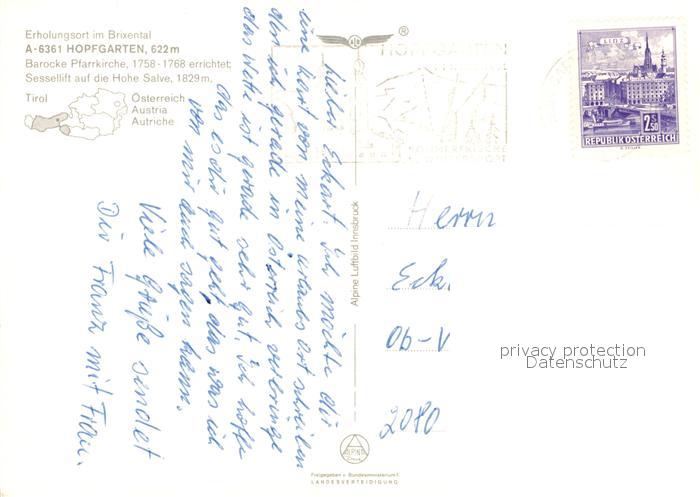 Erholungsort im Brixental
A-6361 HOPFGARTEN, 622m
Barocke Pfarrkirche, 1758-1768 errichtet;
Sessellift auf die Hohe Salve, 1829m,
Tirol
Österreich
Austria
Autriche
®
HOPFGARTEN
LINZ
2.50
REPUBLIK ÖSTERREICH
Lieber Eckart. Ich möchte dir
eine kart von meine urlaubs ort schreiben
den ich gerade in Österreich verbringe
das Wette ist gerade sehr gut. ich hoffe
das es dir gut geht das was ich
von mir auch sagen kann.
Viele Grüße sendet
Die Franz mit Frau.
Alpine Luftbild Innsbruck
Herrn
Eck.
Ob-V
2080
privacy protection
Datenschutz
ALPINE
Freigegeben v. Bundesministerium f.
LANDESVERTEIDIGUNG